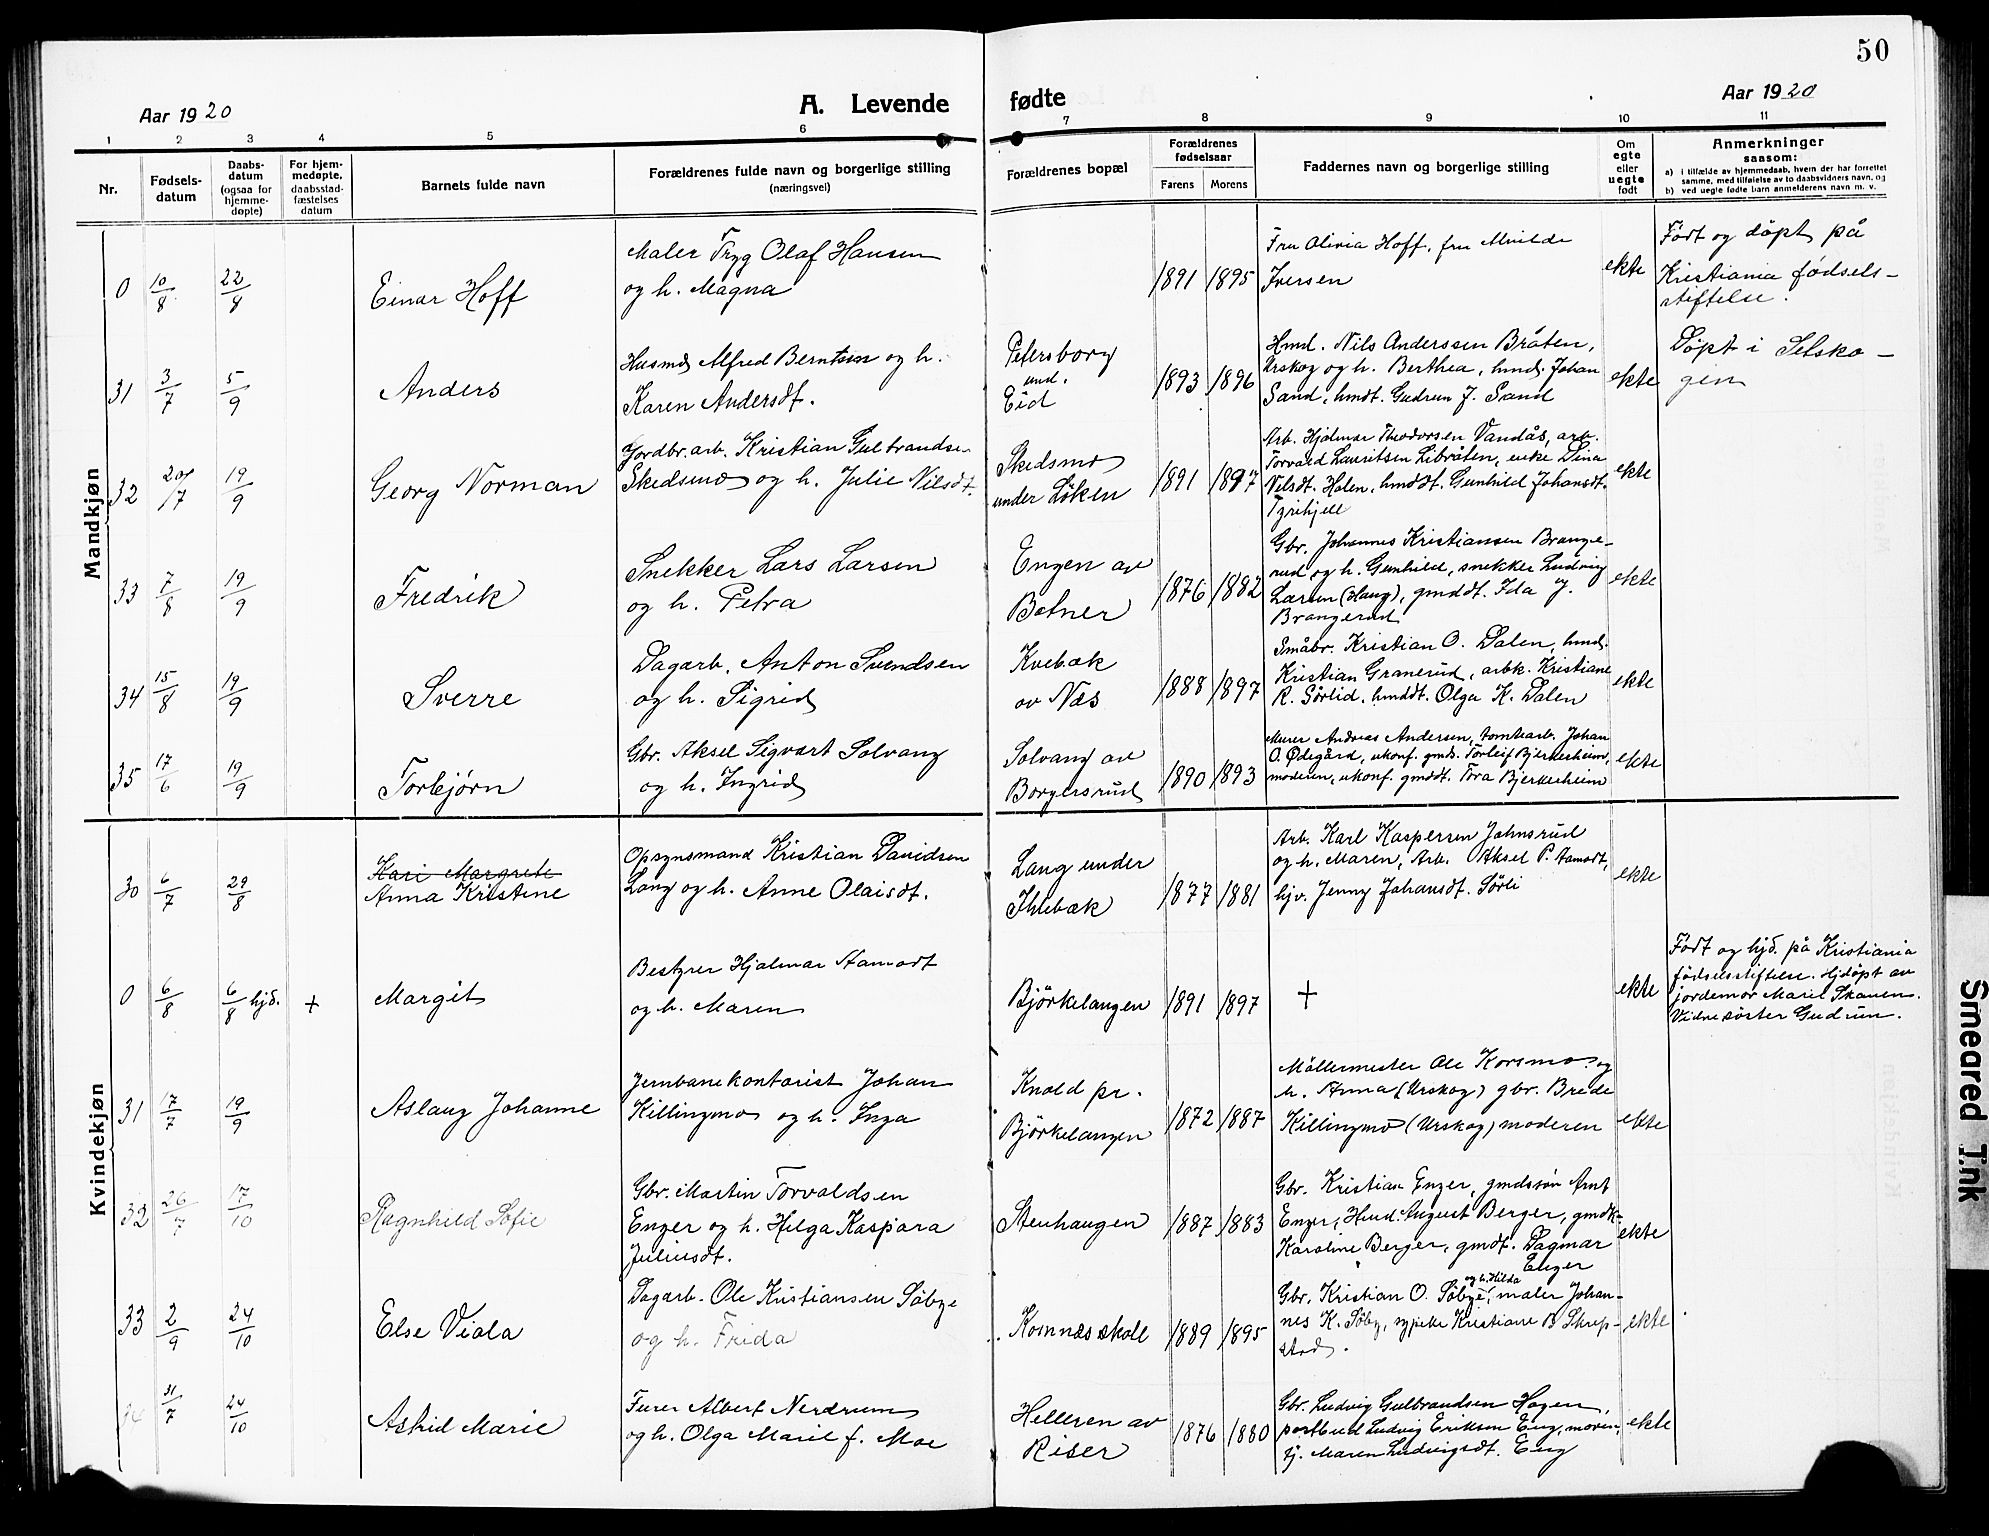 50
Aar 1920
A. Levende fødte
Aar 1920
1 2 3 4 5 6 7 8 9 10 11
Nr.
Fødsels-
datum
Daabs-
datum
(ogsaa for
hjemme-
døpte)
For hjem-
medøpte,
daabsstad-
fæstelses
datum
Barnets fulde navn
Forældrenes fulde navn og borgerlige stilling
(næringsvei)
Forældrenes bopæl
Forældrenes
fødselsaar
Farens Morens
Faddernes navn og borgerlige stilling
Om
egte
eller
uegte
født
Anmerkninger
saasom:
a) i tilfælde av hjemmedaab, hvem der har forrettet
samme, med tilføielse av to daabsvidners navn, og
b) ved uegte fødte barn anmelderens navn m. v.
Mandkjøn
0 10/8 22/8 Einar Hoff
Maler Tryg Olaf Hansen
og h. Magna
1891 1895
Fru Olivia Hoff, fru Mvilde
Iversen
ekte
Født og döpt på
Kristiania fødsels-
stiftelse.
31 3/7 5/9 Anders
Husmd Alfred Berntsen og h.
Karen Andersdt.
Petersborg
und.
Eid
1893 1896
Hmd. Nils Anderssen Bråten,
Urskog og h. Berthea, hmds. Johan
Sand, hmdt. Gudrun J. Sand
ekte
Döpt i Setsko-
gen
32 20/7 19/9 Georg Norman
Jordbr.arb. Kristian Gulbrandsen
Skedsmo og h. Julie Nilsdt.
Skedsmo
under Løken
1891 1897
Arb. Hjalmar Theodorsen Vandås, arb.
Torvald Lauritsen Libråten, enke Dina
Nilsdt. Holen, hmddt. Gunhild Johansdt.
Tyrihjell
ekte
33 7/8 19/9 Fredrik
Snekker Lars Larsen
og h. Petra
Engen av
Botner
1876 1882
Gbr. Johannes Kristiansen Brange-
rud og h. Gunhild, snekker Ludvig
Larsen (Haug), gmddt. Ida J.
Brangerud
ekte
34 15/8 19/9 Sverre
Dagarb. Anton Svendsen
og h. Sigrid
Kvebæk
av Næs
1888 1897
Småbr. Kristian O. Dalen, hmd.
Kristian Granerud, arbk. Kristiane
R. Sörlid, hmddt. Olga K. Dalen
ekte
35 17/6 19/9 Torbjørn
Gbr. Aksel Sigvart Solvang
og h. Ingrid
Solvang av
Borgersrud
1890 1893
Murer Andreas Andersen, tomtearb. Johan
O. Ødegård, ukonf. gmds. Torleif Bjerkerheim,
moderen, ukonf. gmddt. Tora Bjerkerheim
ekte
Kvindekjøn
30 6/7 29/8 Kari Margrete
Anna Kristine
Opsynsmand Kristian Davidsen
Lang og h. Anne Olaisdt.
Lang under
Ihlebæk
1877 1881
Arb. Karl Kaspersen Johnsrud
og h. Maren, Arb. Aksel P. Aamodt,
hjv. Jenny Johansdt. Sørli
ekte
0 6/8 6/8 hjd. + Margit
Bestyrer Hjalmar Aamodt
og h. Maren
Björkelangen
1891 1897
+
ekte
Født og hjd. på Kristiania
födselsstiftelse. Hjdöpt av
jordemor Marie Skauen.
Vidne söster Gudrun.
31 17/7 19/9 Aslaug Johanne
Jernbanekontorist Johan
Killingmo og h. Inga
Knold pr.
Björkelangen
1872 1887
Möllermester Ole Korsmo og
h. Anna (Urskog) gbr. Brede
Killingmo (Urskog) moderen
ekte
32 26/7 17/10 Ragnhild Sofie
Gbr. Martin Torvaldsen
Enger og h. Helga Kaspara
Juliusdt.
Stenhaugen
1887 1883
Gbr. Kristian Enger, gmdssøn Arnt
Enger, Hmd. August Berger, gmdk.
Karoline Berger, gmdt. Dagmar
Enger
ekte
33 2/9 24/10 Else Viola
Dagarb. Ole Kristiansen Söbye
og h. Frida
Komnæs skole
1889 1895
Gbr. Kristian O. Söbye og h. Hilda, maler Johan-
nes K. Söby, sypike Kristiane B. Skrep-
stad.
ekte
34 31/7 24/10 Astrid Marie
Furer Albert Nerdrum
og h. Olga Marie f. Moe
Helleren av
Riser
1876 1880
Gbr. Ludvig Gulbrandsen Hagen,
postbud Ludvig Eriksen Eng, moren,
tj. Maren Ludvigsdt. Eng
ekte
Smeared Ink